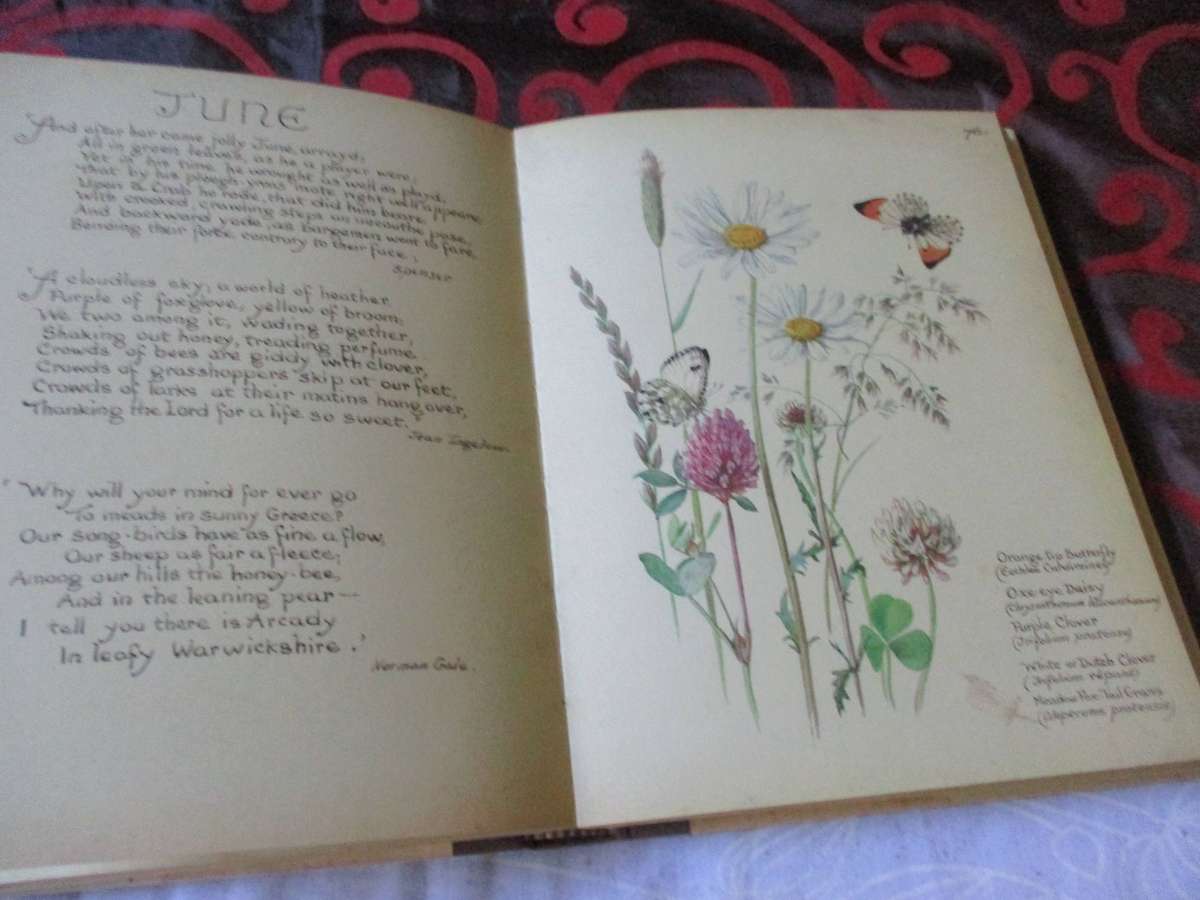 JUNE
"And after her came jolly June, array'd,
All in green leaves, as he a player were;
Yet in his time he wrought as well as play'd,
That by his plough-yrons mote right well appeare.
Upon a Crab he rode, that did him beare,
With crooked crawling steps an uncouthe pase,
And backward yode, as bargemen wont to fare,
Bending their force contrary to their face;
Spenser
'A cloudless sky; a world of heather
Purple of foxglove, yellow of broom;
We two among it, wading together,
Shaking out honey, treading perfume.
Crowds of bees are giddy with clover,
Crowds of grasshoppers skip at our feet,
Crowds of larks at their matins hang over,
Thanking the Lord for a life so sweet."
Jean Ingelow.
"Why will your mind for ever go
To meads in sunny Greece?
Our song-birds have as fine a flow,
Our sheep as fair a fleece;
Among our hills the honey-bee,
And in the leaning pear—
I tell you there is Arcady
In leafy Warwickshire.'
Norman Gale.
76.
Orange Tip Butterfly
Ox-eye Daisy
Purple Clover
(Trifolium pratense)
White or Dutch Clover
(Trifolium repens)
Meadow Fox Tail Grass